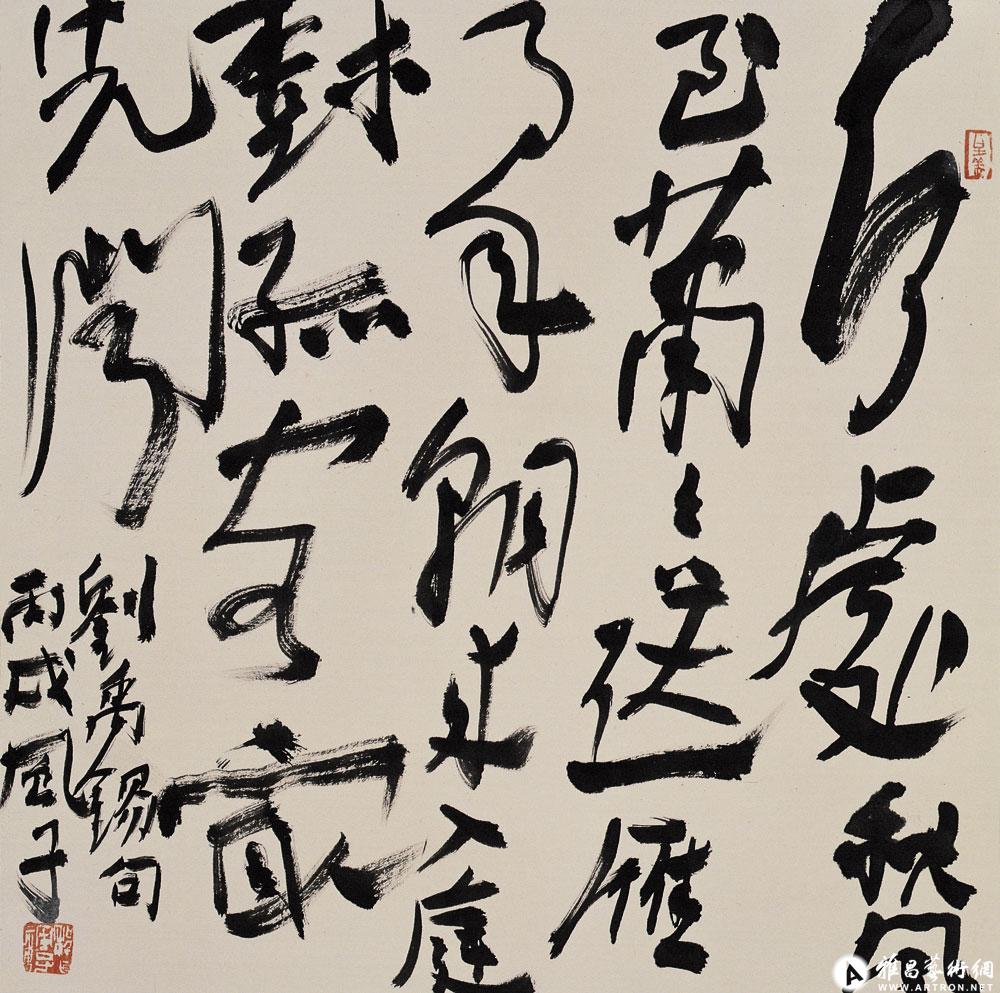 何處秋風
至蕭〻送雁
羣朝来入庭
樹孤客最
先聞
劉禹錫句
丙戌風子
雅昌藝術網
WWW.ARTRON.NET